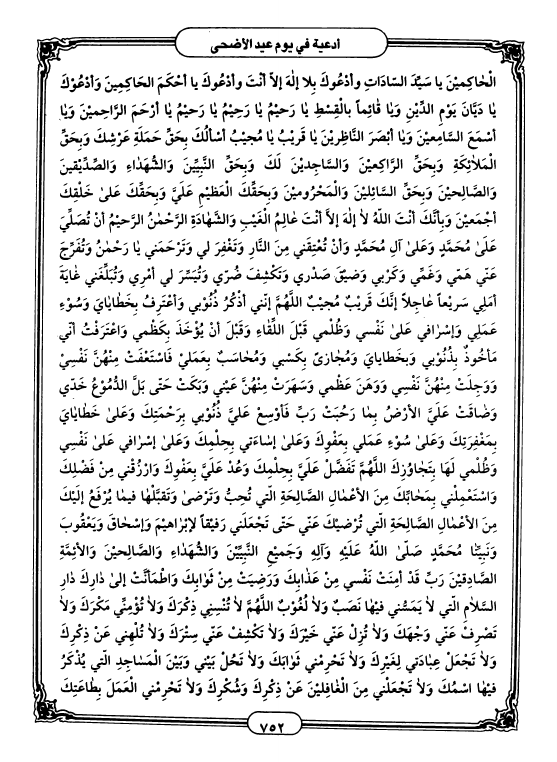 أدعية في يوم عيد الأضحى
الْحَاكِمِيْنَ يا سَيِّدَ السّادَاتِ وأدْعُوكَ بِلا إلٰهَ إلاَّ أنْتَ وأدْعُوكَ يا أَحْكَمَ الحَاكِمِينَ وَأدْعُوْكَ
يَا دَيَّانَ يَوْمِ الدِّيْنِ وَيَا قَائِماً بالْقِسْطِ يَا رَحِيْمُ يَا رَحِيْمُ يَا رَحِيْمُ يَا أرْحَمَ الرَّاحِميْنَ وَيَا
أسْمَعَ السَّامِعيْنَ وَيَا أبْصَرَ النَّاظِرِيْنَ يَا قَرِيْبُ يَا مُجِيْبُ أسْأَلُكَ بِحَقِّ حَمَلَةِ عَرْشِكَ وَبِحَقِّ
الْمَلاَئِكَةِ وَبِحَقِّ الرَّاكِعيْنَ وَالسَّاجِديْنَ لَكَ وَبِحَقِّ النَّبِيِّيْنَ وَالشُّهَدَاءِ وَالصِّدِّيْقيْنَ
وَالصَّالِحيْنَ وَبِحَقِّ السَّائِليْنَ وَالْمَحْرُوميْنَ وَبِحَقِّكَ الْعَظِيْمِ عَلَيَّ وَبِحَقِّكَ عَلىٰ خَلْقِكَ
أجْمَعيْنَ وَبِأنَّكَ أنْتَ اللهُ لاَ إلٰهَ إلاَّ أنْتَ عَالِمُ الْغَيْبِ وَالشَّهَادَةِ الرَّحْمٰنُ الرَّحيْمُ أنْ تُصَلِّيَ
عَلىٰ مُحَمَّدٍ وَعَلىٰ آلِ مُحَمَّدٍ وَأنْ تُعْتِقَني مِنَ النَّارِ وَتَغْفِرَ لي وَتَرْحَمَني يَا رَحْمٰنُ وَتُفَرِّجَ
عَنّي هَمّي وَغَمِّي وَكَرْبي وَضيْقَ صَدْري وَتَكْشِفَ ضُرّي وَتُيَسِّرَ لي أمْري وَتُبَلِّغَني غَايَةَ
أمَلِي سَرِيْعاً عَاجِلاً إنَّكَ قَرِيْبٌ مُجيْبٌ اللَّهُمَّ إنَّني أذْكُرُ ذُنُوْبي وَأعْتَرِفُ بِخَطَايَايَ وَسُوْءِ
عَمَلي وَإسْرَافي عَلىٰ نَفْسي وَظُلْمي قَبْلَ اللِّقَاءِ وَقَبْلَ أنْ يُؤْخَذَ بِكَظْمي وَاعْتَرَفْتُ أنّي
مَأخُوْذٌ بِذُنُوْبي وَبِخَطَايَايَ وَمُجَازىً بِكَسْبي وَمُحَاسَبٌ بِعَمَلِيْ فَاسْتَعْفَتْ مِنْهُنَّ نَفْسِيْ
وَوَجِلَتْ مِنْهُنَّ نَفْسي وَوَهَنَ عَظْمي وَسَهِرَتْ مِنْهُنَّ عَيْني وَبَكَتْ حَتّى بَلَّ الدُّمُوْعُ خَدّي
وَضَاقَتْ عَلَيَّ الأَرْضُ بِمَا رَحُبَتْ رَبِّ فَأوْسِعْ عَلَيَّ ذُنُوْبي بِرَحْمَتِكَ وَعَلىٰ خَطَايَايَ
بِمَغْفِرَتِكَ وَعَلىٰ سُوْءِ عَمَلي بِعَفْوِكَ وَعَلىٰ إسَاءَتي بِحِلْمِكَ وَعَلىٰ إسْرَافي عَلىٰ نَفْسي
وَظُلْمي لَهَا بِتَجَاوُزِكَ اللَّهُمَّ تَفَضَّلْ عَلَيَّ بِحِلْمِكَ وَعُدْ عَلَيَّ بِعَفْوِكَ وَارْزُقْني مِنْ فَضْلِكَ
وَاسْتَعْمِلْني بِمَحَابِّكَ مِنَ الأَعْمَالِ الصَّالِحَةِ الَّتي تُحِبُّ وَتَرْضىٰ وَتَقَبَّلْهَا فيمَا يُرْفَعُ إلَيْكَ
مِنَ الأَعْمَالِ الصَّالِحَةِ الَّتي تُرْضيْكَ عَنّي حَتّى تَجْعَلَني رَفيْقاً لإِبْراهِيمَ وَإسْحَاقَ وَيَعْقُوبَ
وَنَبِيِّنَا مُحَمَّدٍ صَلَّى اللهُ عَلَيْهِ وَآلِهِ وَجَميعِ النَّبِيِّيْنَ وَالشُّهَدَاءِ وَالصَّالِحيْنَ وَالأَئِمَّةِ
الصَّادِقيْنَ رَبِّ قَدْ أمِنَتْ نَفْسي مِنْ عَذَابِكَ وَرَضِيَتْ مِنْ ثَوَابِكَ وَاطْمَأنَّتْ إلىٰ دَارِكَ دَارِ
السَّلاَمِ الَّتي لاَ يَمَسُّني فيْهَا نَصَبٌ وَلاَ لُغُوْبٌ اللَّهُمَّ لاَ تُنْسِني ذِكْرَكَ وَلاَ تُؤْمِنّي مَكْرَكَ وَلاَ
تَصْرِفْ عَنّي وَجْهَكَ وَلاَ تُزِلْ عَنّي خَيْرَكَ وَلاَ تَكْشِفْ عَنّي سِتْرَكَ وَلاَ تُلْهِني عَنْ ذِكْرِكَ
وَلاَ تَجْعَلْ عِبَادَتي لِغَيْرِكَ وَلاَ تَحْرِمْني ثَوَابَكَ وَلاَ تَحُلْ بَيْني وَبَيْنَ الْمَسَاجِدِ الَّتي يُذْكَرُ
فيْهَا اسْمُكَ وَلاَ تَجْعَلْني مِنَ الْغَافِليْنَ عَنْ ذِكْرِكَ وَشُكْرِكَ وَلاَ تَحْرِمْني الْعَمَلَ بِطَاعَتِكَ
٧٥٢